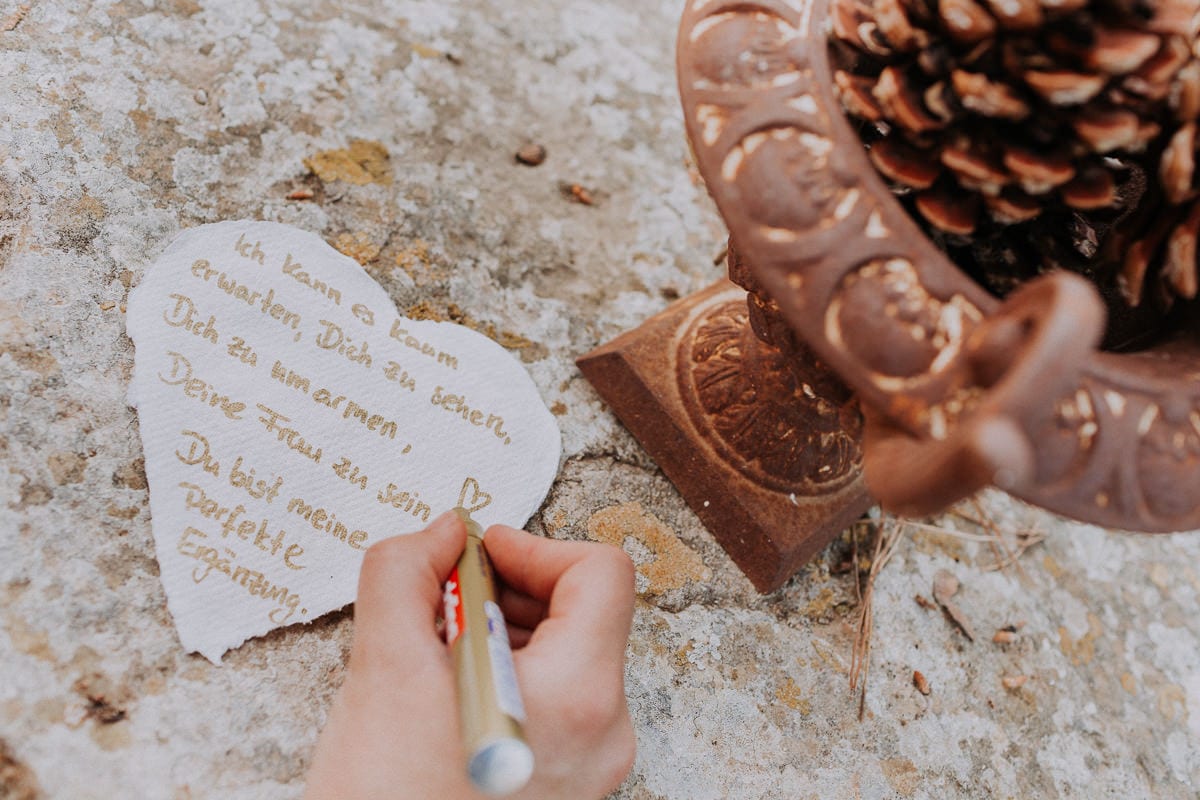 Ich kann es kaum
erwarten, Dich zu sehen,
Dich zu umarmen,
Deine Frau zu sein
Du bist meine
perfekte
Ergänzung.